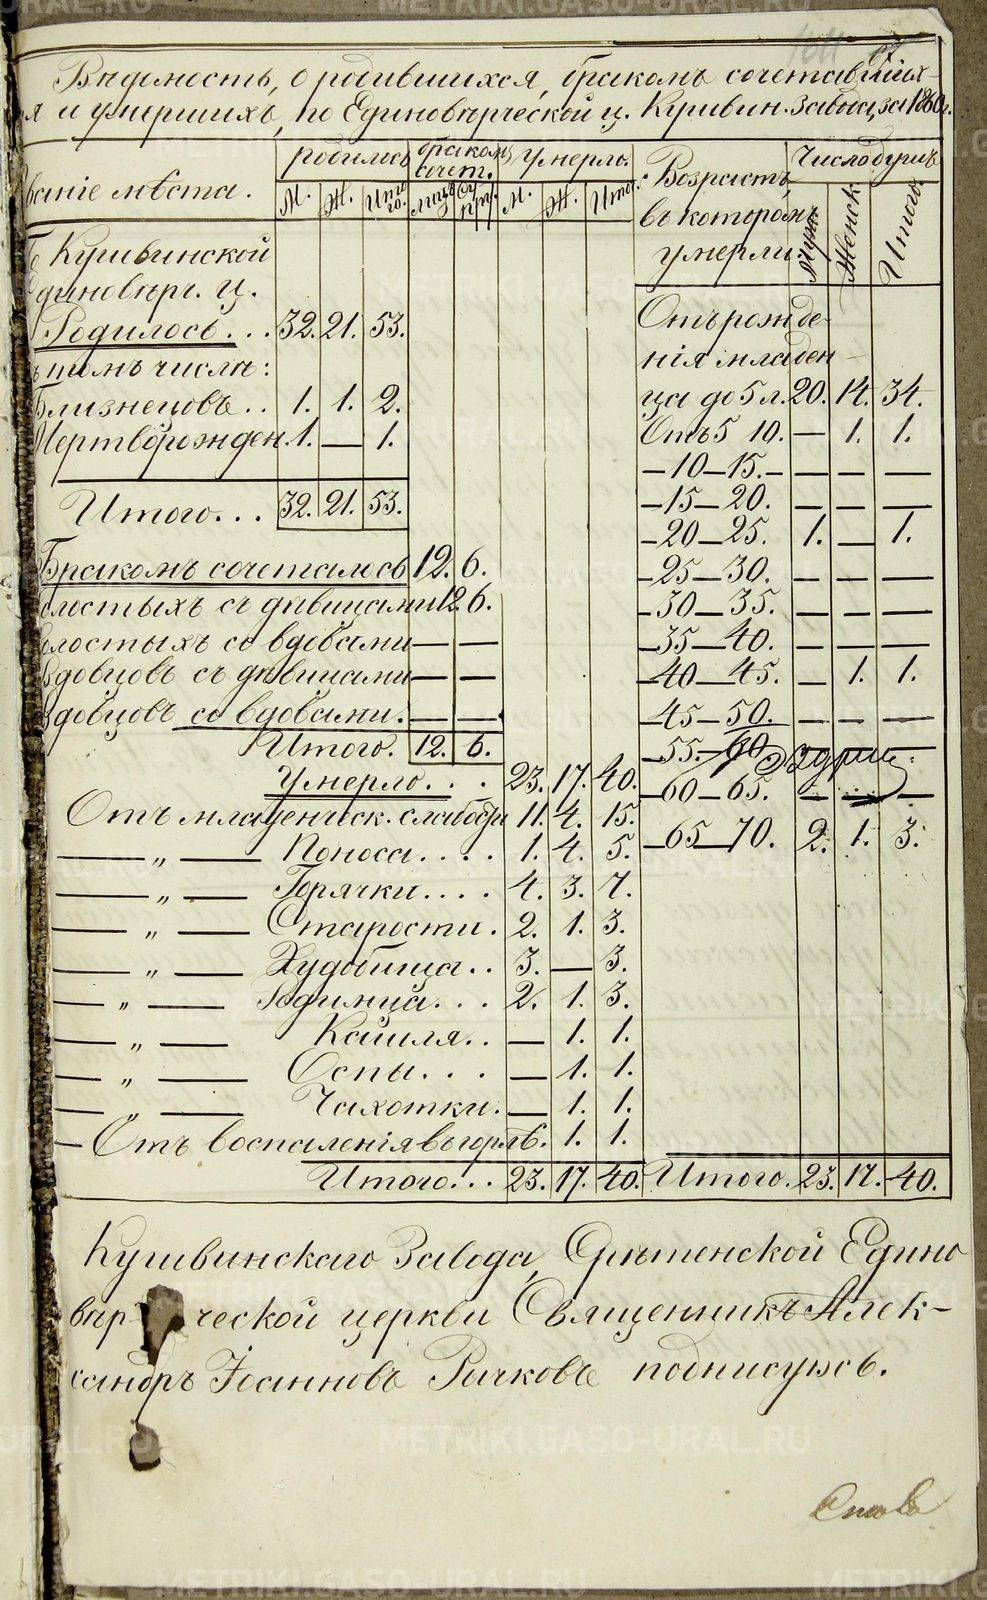 Вѣдомость, о родившихся, бракомъ сочетавших-
ся и умершихъ, по Единовѣрческой ц. Кушвин. Завода, за 1860 г.
родилось бракомъ сочет. умерло. Возрастъ, въ которомъ умерли Число душъ
вание мѣста. М. Ж. Итого. лицъ М. Ж. Итог. Муж. Женск. Итого
Кушвинской
диновѣрч. ц.
Родилось... 32. 21. 53.
томъ числѣ:
Близнецовъ.. 1. 1. 2.
Мертворожден. 1. — 1.
Итого... 32. 21. 53.
Бракомъ сочеталось 12. 6.
олостыхъ съ дѣвицами 12. 6.
олостыхъ со вдовами — —
вдовцовъ съ дѣвицами — —
вдовцовъ со вдовами. — —
Итого. 12. 6.
Умерло... 23. 17. 40.
Отъ младенческ. слабости 11. 4. 15.
— „ — Поноса.... 1. 4. 5.
— „ — Горячки.... 4. 3. 7.
— „ — Старости. 2. 1. 3.
— „ — Худобища.. 3. — 3.
— „ — Родимца... 2. 1. 3.
— „ — Кашля.. — 1. 1.
— „ — Оспы... — 1. 1.
— „ — Чахотки. — 1. 1.
— Отъ воспаленія въ горлѣ. 1. 1.
Итого... 23. 17. 40.
Отъ рожде-
нія младен-
ца до 5 л. 20. 14. 34.
Отъ 5 10. — 1. 1.
—10—15.— — — —
—15—20. — — —
—20—25. 1. — 1.
—25—30. — — —
—30—35. — — —
—35—40. — — —
—40—45. — 1. 1.
—45—50. — — —
—55—60
—60—65. — — —
—65—70. 2. 1. 3.
Итого. 23. 17. 40.
Кушвинскаго Завода, Срѣтенской Едино
вѣр ческой церкви Священникъ Алек-
сандръ Іоанновъ Рычковъ подписуюсь.
METRIKI.GASO-URAL.RU